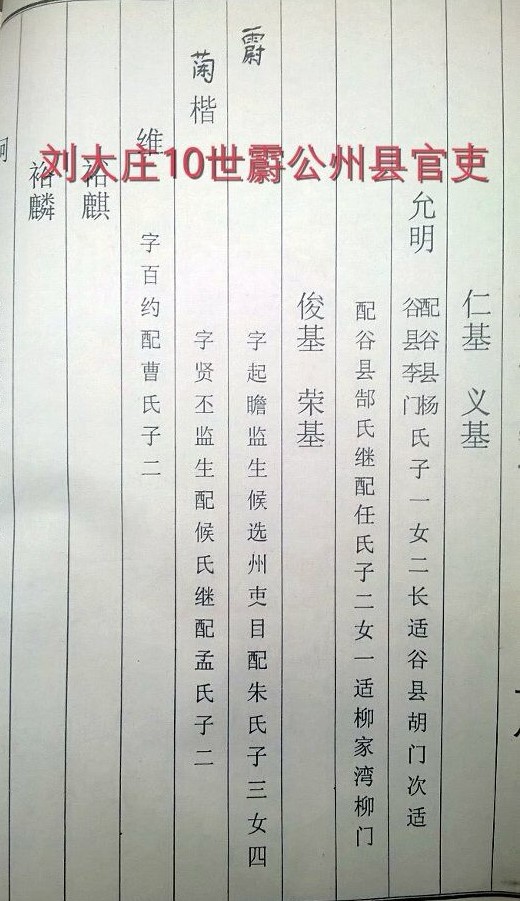 刘大庄10世霨公州县官吏
仁基 义基
允明 配谷县杨氏子一女二长适谷县胡门次适
谷县李门
配谷县郜氏继配任氏子二女一适柳家湾柳门
俊基 荣基
霨 字起瞻监生候选州吏目配朱氏子三女四
楷 字贤丕监生配候氏继配孟氏子二
维 字百约配曹氏子二
裕麒
裕麟